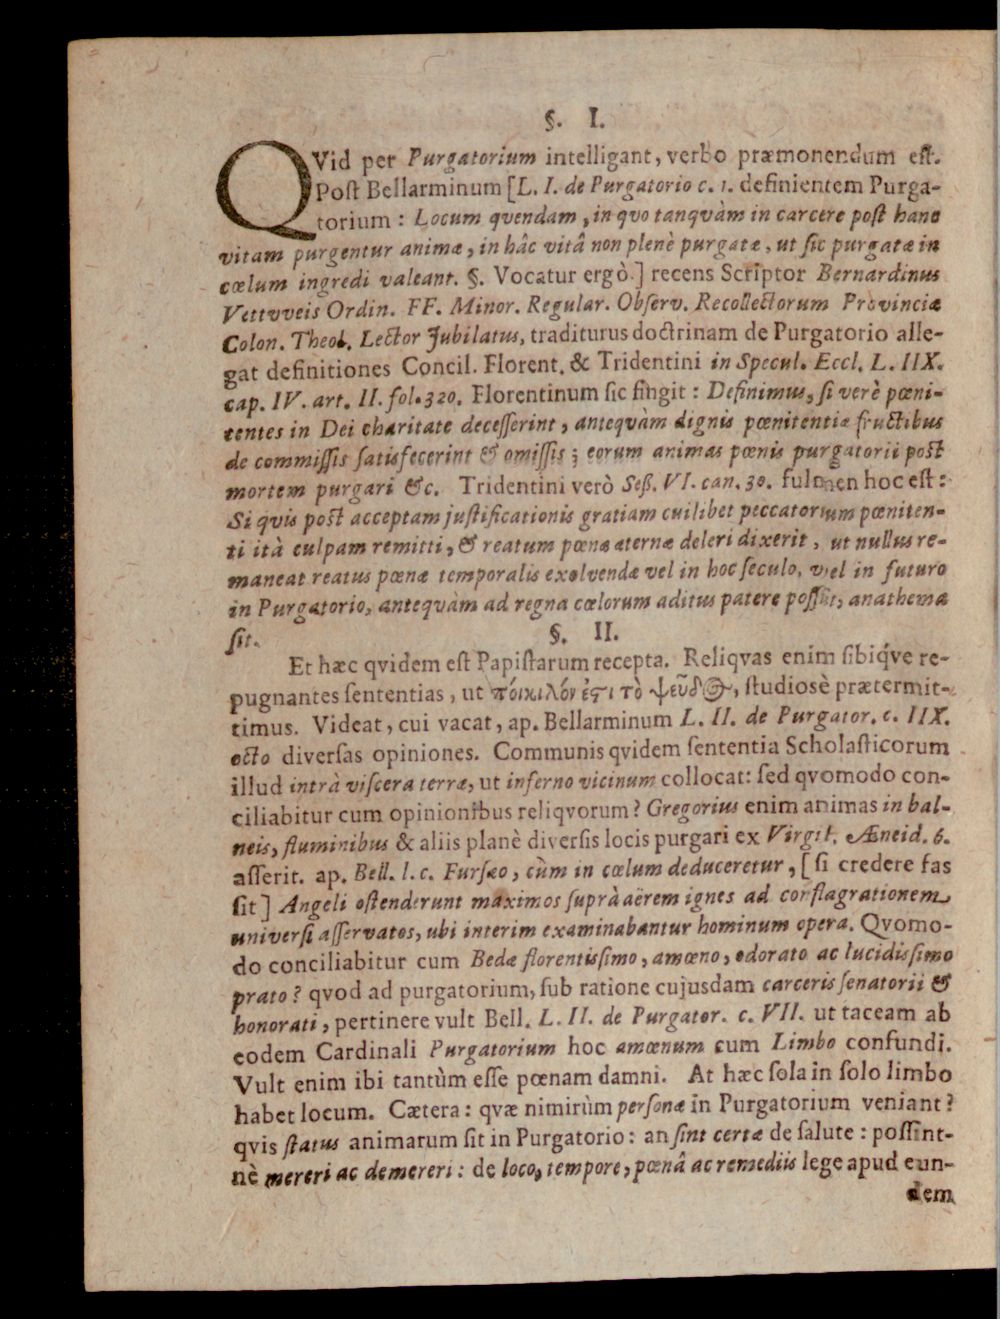 §. I.
QVid per Purgatorium intelligant, verbo præmonendum est.
Post Bellarminum [L. I. de Purgatorio c. 1. definientem Purga-
torium: Locum qvendam, in qvo tanqvàm in carcere post hanc
vitam purgentur animæ, in hâc vitâ non plenè purgatæ, ut sic purgatæ in
cœlum ingredi valeant. §. Vocatur ergò.] recens Scriptor Bernardinus
Vettvveis Ordin. FF. Minor. Regular. Observ. Recollectorum Provinciæ
Colon. Theol. Lector Jubilatus, traditurus doctrinam de Purgatorio alle-
gat definitiones Concil. Florent. & Tridentini in Specul. Eccl. L. IIX.
cap. IV. art. II. fol. 320. Florentinum sic fingit: Definimus, si verè pœni-
tentes in Dei charitate decesserint, anteqvàm dignis pœnitentiæ fructibus
de commissis satisfecerint & omissis; eorum animas pœnis purgatorii post
mortem purgari &c. Tridentini verò Seß. VI. can. 30. fulmen hoc est:
Si qvis post acceptam justificationis gratiam cuilibet peccatorium pœniten-
ti ità culpam remitti, & reatum pœnæ æternæ deleri dixerit, ut nullus re-
maneat reatus pœnæ temporalis exolvendæ vel in hoc seculo, vel in futuro
in Purgatorio, anteqvàm ad regna cœlorum aditus patere possit, anathema
sit.
§. II.
Et hæc qvidem est Papistarum recepta. Reliqvas enim sibiq́ve re-
pugnantes sententias, ut πόικιλόν ἐςι τὸ ψεῦδος, studiosè prætermit-
timus. Videat, cui vacat, ap. Bellarminum L. II. de Purgator. c. IIX.
octo diversas opiniones. Communis qvidem sententia Scholasticorum
illud intrà viscera terræ, ut inferno vicinum collocat: sed qvomodo con-
ciliabitur cum opinionibus reliqvorum? Gregorius enim animas in bal-
neis, fluminibus & aliis planè diversis locis purgari ex Virgil. Æneid. 6.
asserit. ap. Bell. l. c. Fursæo, cùm in cœlum deduceretur, [si credere fas
sit] Angeli ostenderunt maximos suprà aërem ignes ad conflagrationem
universi asservatos, ubi interim examinabantur hominum opera. Qvomo-
do conciliabitur cum Bedæ florentissimo, amœno, odorato ac lucidissimo
prato? qvod ad purgatorium, sub ratione cujusdam carceris senatorii &
honorati, pertinere vult Bell. L. II. de Purgator. c. VII. ut taceam ab
eodem Cardinali Purgatorium hoc amœnum cum Limbo confundi.
Vult enim ibi tantùm esse pœnam damni. At hæc sola in solo limbo
habet locum. Cætera: qvæ nimirùm personæ in Purgatorium veniant?
qvis status animarum sit in Purgatorio: an sint certæ de salute: possint-
nè mereri ac demereri: de loco, tempore, pœnâ ac remediis lege apud eun-
dem